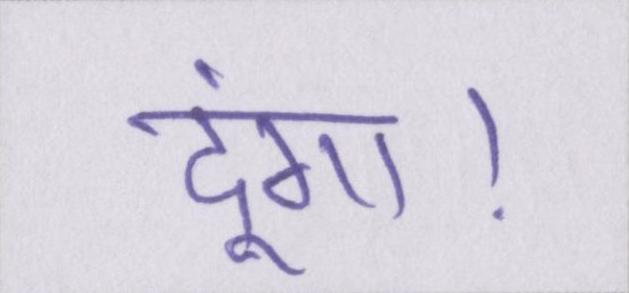 दूंगा!